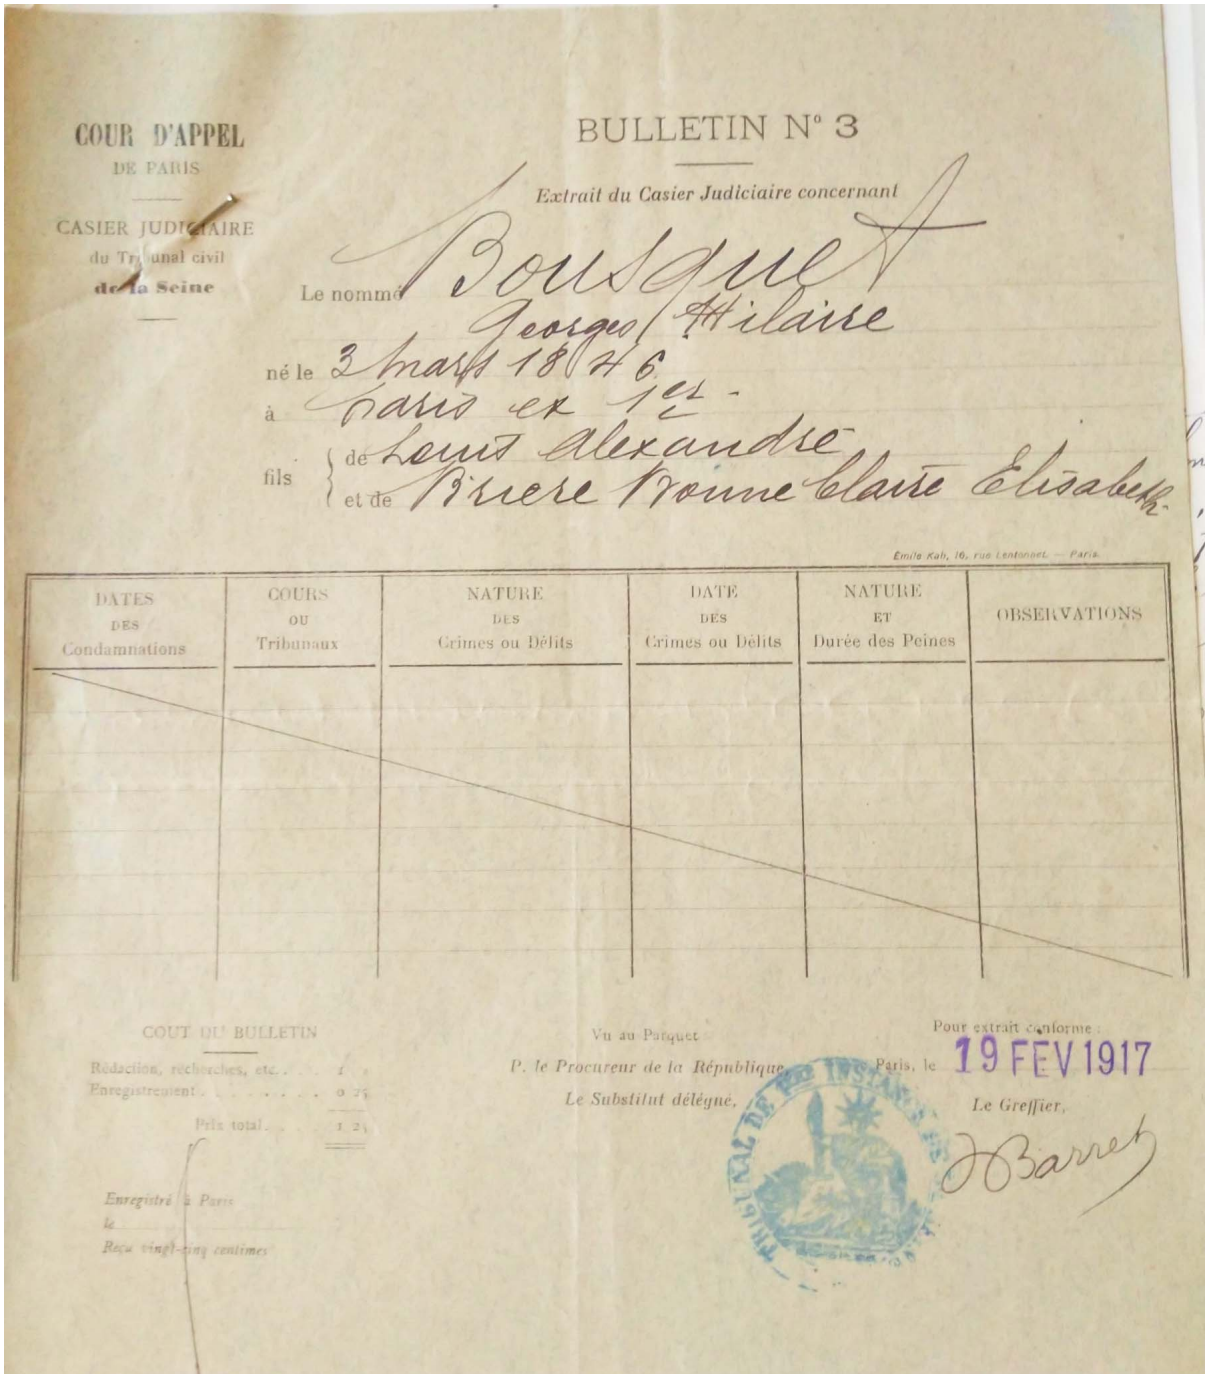 COUR D'APPEL
DE PARIS
CASIER JUDICIAIRE
du Tribunal civil
de la Seine
BULLETIN N° 3
Extrait du Casier Judiciaire concernant
Le nommé Bousquet
Georges Hilaire
né le 3 mars 1846
à Paris ex 1er
fils
de Louis Alexandre
et de Briere Bonne Claire Elisabeth
Émile Kah, 16, rue Lentonnet. — Paris.
DATES
DES
Condamnations
COURS
OU
Tribunaux
NATURE
DES
Crimes ou Délits
DATE
DES
Crimes ou Délits
NATURE
ET
Durée des Peines
OBSERVATIONS
COUT DU BULLETIN
Rédaction, recherches, etc. . 1 »
Enregistrement . . . . . . . 0 25
Prix total. . . 1 25
Enregistré à Paris
le
Reçu vingt-cinq centimes
Vu au Parquet
P. le Procureur de la République,
Le Substitut délégué,
Pour extrait conforme :
Paris, le 19 FEV 1917
Le Greffier,
Barret
TRIBUNAL DE 1re INSTANCE DE